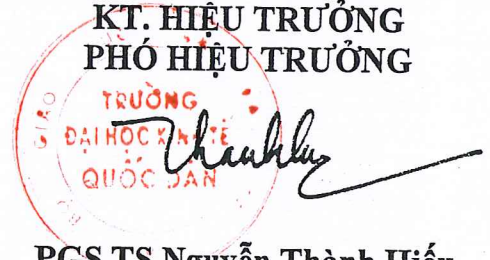 KT. HIỆU TRƯỞNG
PHÓ HIỆU TRƯỞNG
TRƯỜNG
ĐẠI HỌC KINH TẾ
QUỐC DÂN
PGS.TS Nguyễn Thành Hiếu